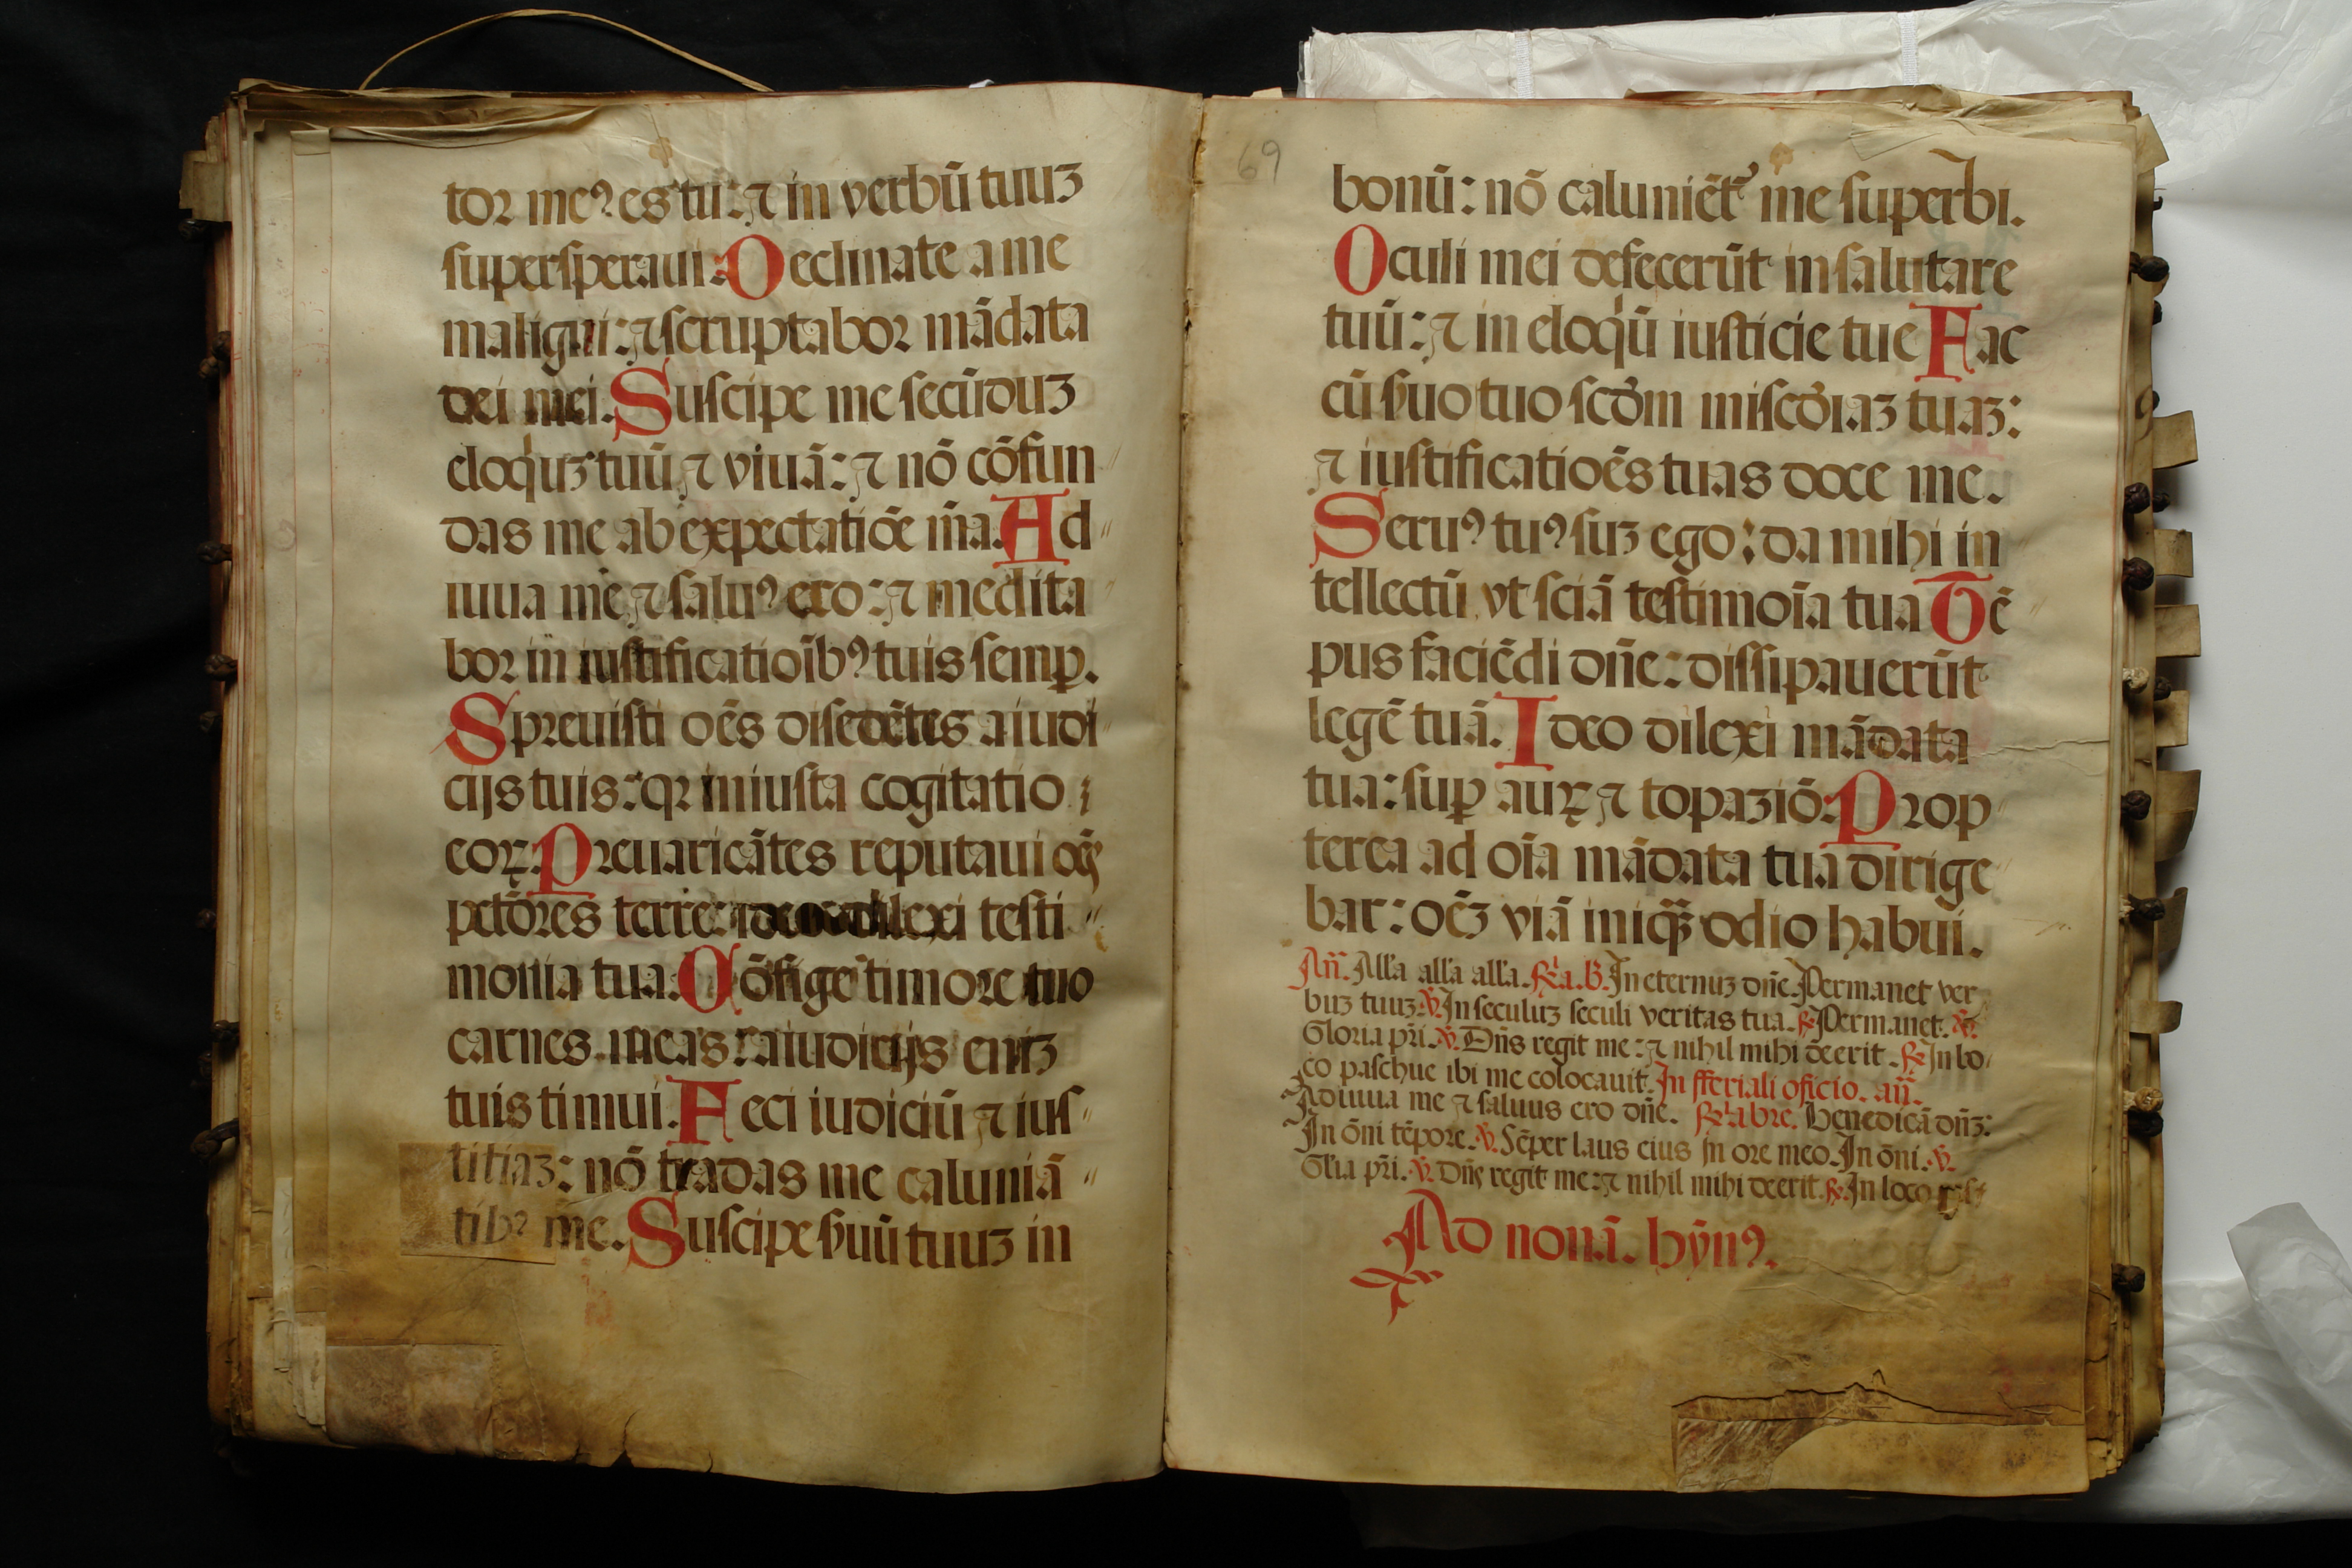 tor meꝰ es tu: ⁊ in verbū tuuꝫ
supersperaui: Declinate a me
maligni: ⁊ scruptabor mādata
dei mei. Suscipe me secūduꝫ
eloqͥuꝫ tuū ⁊ viuā: ⁊ nō cōfun
das me ab expectatiōe m̄a. Ad
iuua me ⁊ saluꝰ ero: ⁊ medita
bor in iustificatioībꝰ tuis semꝑ.
Spreuisti oēs disedētes a iudi
cijs tuis: qꝛ iniusta cogitatio
eoꝝ. Preuaricātes reputaui oēs
pctōres terre: ideo dilexi testi
monia tua. Cōfige timore tuo
carnes meas: a iudicijs eniꝫ
tuis timui. Feci iudiciū ⁊ ius
titiaꝫ: nō tradas me caluniā
tibꝰ me. Suscipe ẜuū tuuꝫ in
69
bonū: nō caluniēt᷑ me superbi.
Oculi mei defecerūt in salutare
tuū: ⁊ in eloqͥū iusticie tue Fac
cū ẜuo tuo scd̄m miscd̄iaꝫ tuaꝫ:
⁊ iustificatioēs tuas doce me.
Seruꝰ tuꝰ suꝫ ego: da mihi in
tellectū vt sciā testimoīa tua Tē
pus faciēdi dn̄e: dissipauerūt
legē tuā. Ideo dilexi mādata
tua: suꝑ auꝝ ⁊ topaziō: Prop
terea ad oīa mādata tua dirige
bar: oēꝫ viā iniqͣꝫ odio habui.
An̄. All'a all'a all'a. ℟a. b. In eternuꝫ dn̄e. Permanet ver
buꝫ tuuꝫ. ℣. In seculuꝫ seculi veritas tua. ℟ Permanet. ℣.
Gloria pr̄i. ℣. Dn̄s regit me: ⁊ nihil mihi deerit. ℟ In lo
co paschue ibi me colocauit. In fferiali oficio. an̄.
Adiuua me ⁊ saluus ero dn̄e. ℟ābre. Benedicā dn̄ꝫ:
In ōni tēpore. ℣. Sēper laus eius in ore meo. In ōni. ℣.
Gl'ia pr̄i. ℣. Dn̄s regit me: ⁊ nihil mihi deerit. ℟. In loco
Ad nonā. hȳnꝰ.